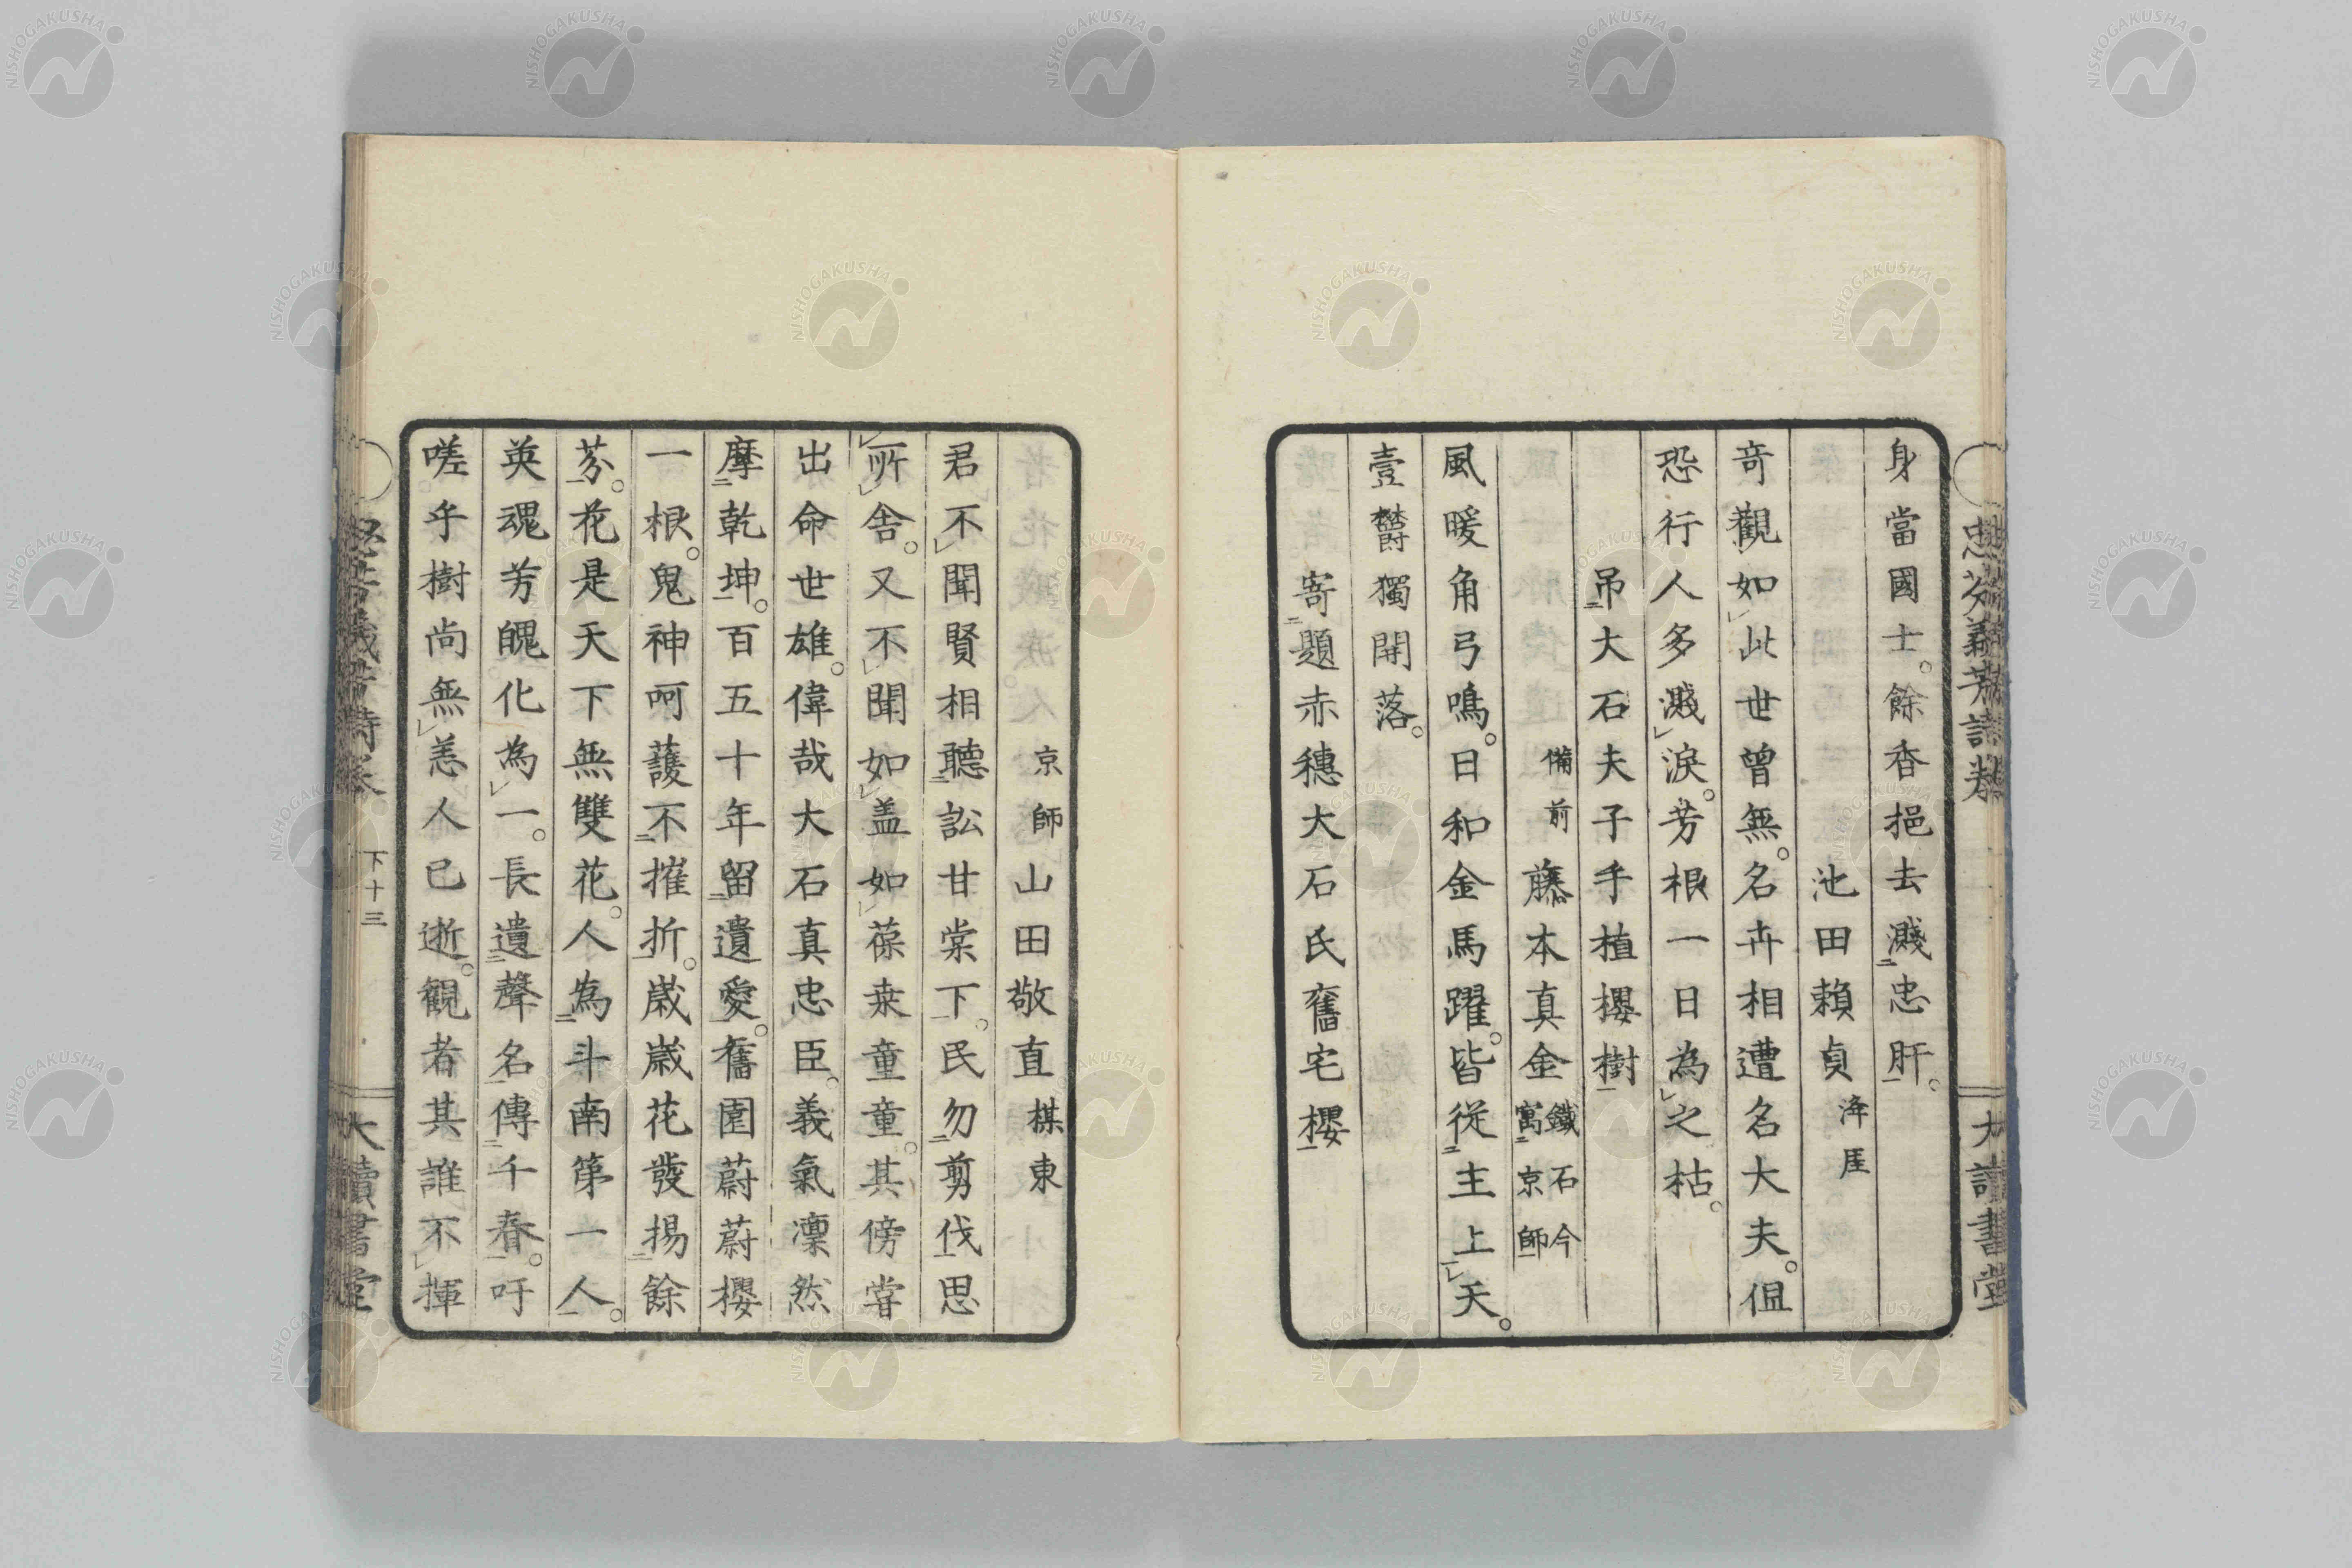 忠芬義芳詩巻
大讀書堂
身當國士。餘香挹去濺忠肝。
池田頼貞 洚厓
竒觀如此世曾無。名卉相遭名大夫。但
恐行人多濺淚。芳根一日為之枯。
吊大石夫子手植櫻樹
備前 藤本真金 鐵石今寓京師
風暖角弓鳴。日和金馬躍。皆從主上天。
壹欝獨開落。
寄題赤穗大石氏舊宅櫻
京師 山田敬直 棋東
君不聞賢相聽訟甘棠下。民勿剪伐思
所舍。又不聞如盖如葆桒童童。其傍甞
出命世雄。偉哉大石真忠臣。義氣凜然
摩乾坤。百五十年留遺愛。舊園蔚蔚櫻
一根。鬼神呵護不摧折。歳歳花發揚餘
芬。花是天下無雙花。人為斗南第一人。
英魂芳魄化為一。長遺聲名傳千春。吁
嗟乎樹尚無恙人已逝。觀者其誰不揮
下十三
大讀書堂
NISHOGAKUSHA